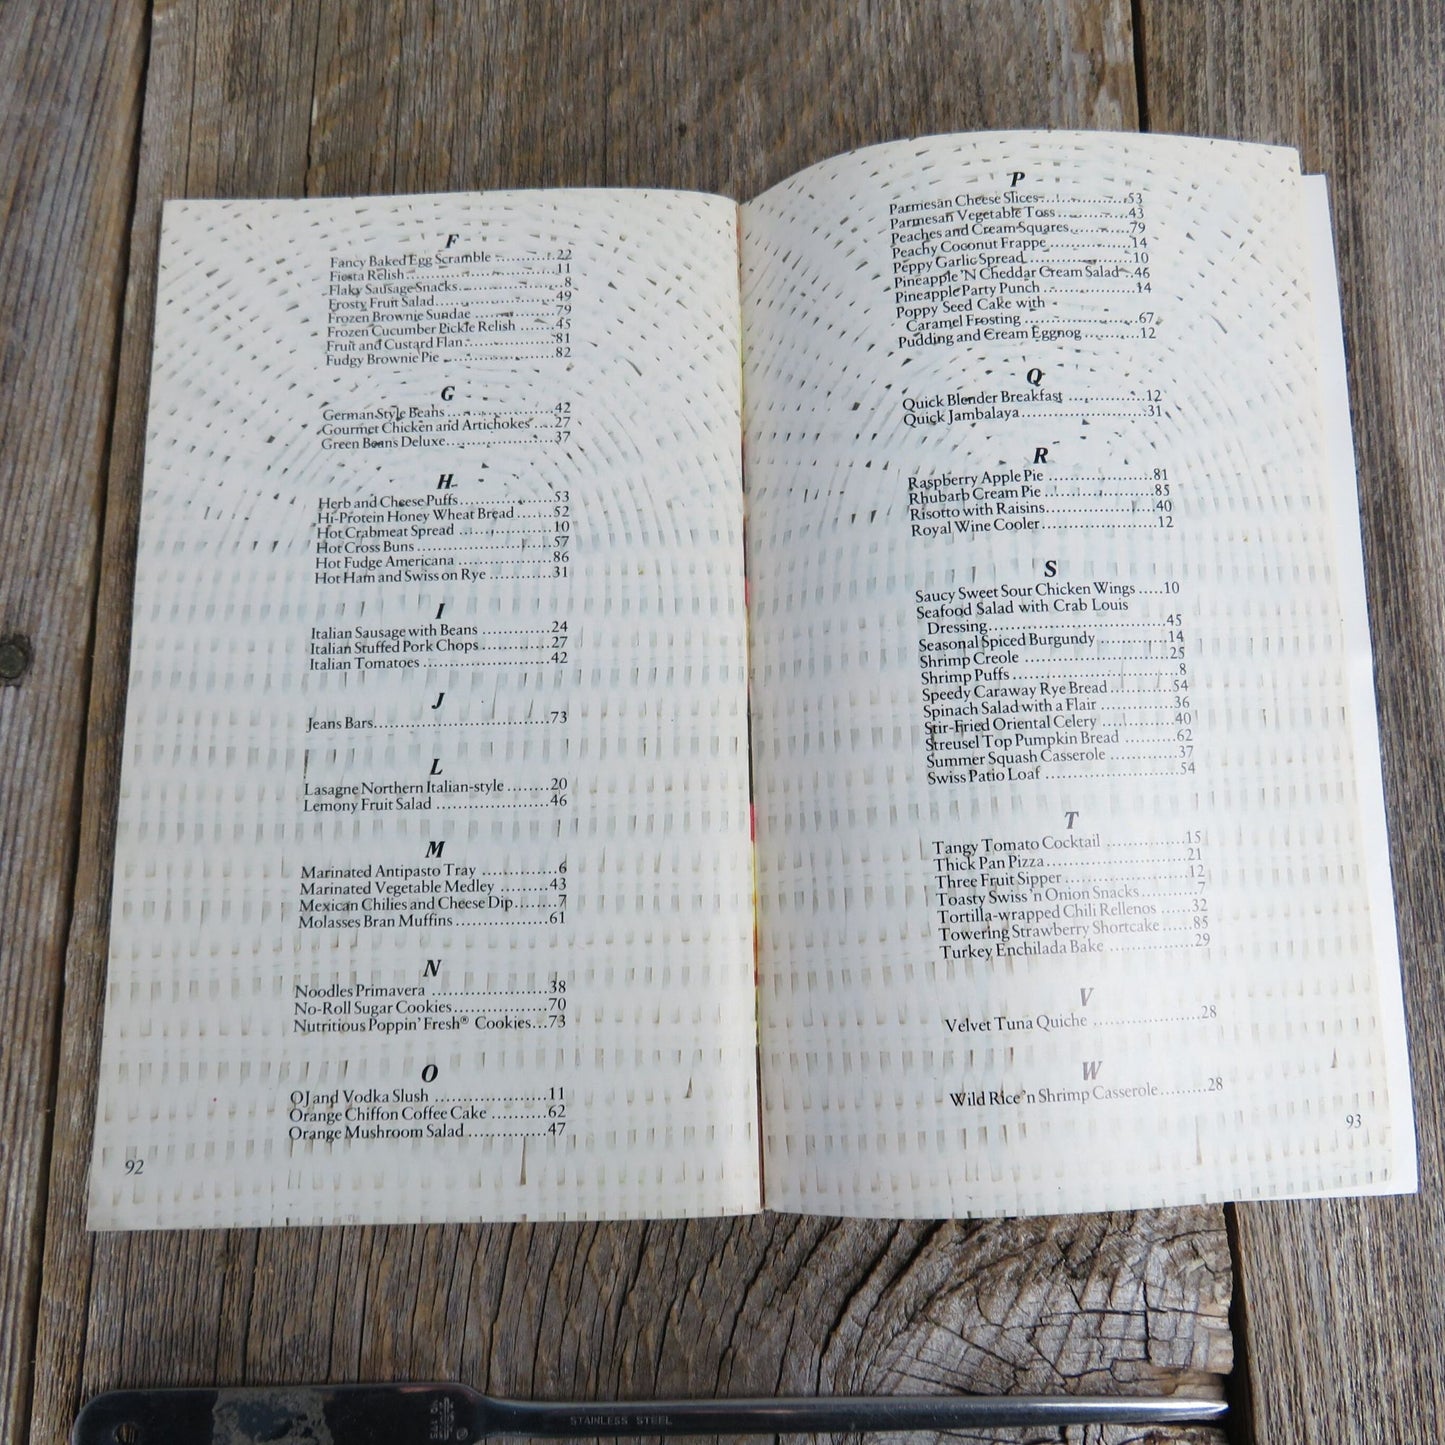 F
Fancy Baked Egg Scramble ............22
Fiesta Relish ............11
Flaky Sausage Snacks ............8
Frosty Fruit Salad ............49
Frozen Brownie Sundae ............79
Frozen Cucumber Pickle Relish ......45
Fruit and Custard Flan ............81
Fudgy Brownie Pie ............82
G
German-Style Beans ............42
Gourmet Chicken and Artichokes ....27
Green Beans Deluxe ............37
H
Herb and Cheese Puffs ............53
Hi-Protein Honey Wheat Bread .......52
Hot Crabmeat Spread ............10
Hot Cross Buns ............57
Hot Fudge Americana ............86
Hot Ham and Swiss on Rye ............31
I
Italian Sausage with Beans ............24
Italian Stuffed Pork Chops ............27
Italian Tomatoes ............42
J
Jeans Bars ............73
L
Lasagne Northern Italian-style ........20
Lemony Fruit Salad ............46
M
Marinated Antipasto Tray ............6
Marinated Vegetable Medley .........43
Mexican Chilies and Cheese Dip.......7
Molasses Bran Muffins ............61
N
Noodles Primavera ............38
No-Roll Sugar Cookies ............70
Nutritious Poppin' Fresh® Cookies...73
O
OJ and Vodka Slush ............11
Orange Chiffon Coffee Cake ..........62
Orange Mushroom Salad ............47
92
P
Parmesan Cheese Slices ............53
Parmesan Vegetable Toss ............43
Peaches and Cream Squares ............79
Peachy Coconut Frappe ............14
Peppy Garlic Spread ............10
Pineapple 'N Cheddar Cream Salad ..46
Pineapple Party Punch ............14
Poppy Seed Cake with
Caramel Frosting ............67
Pudding and Cream Eggnog ............12
Q
Quick Blender Breakfast ............12
Quick Jambalaya ............31
R
Raspberry Apple Pie ............81
Rhubarb Cream Pie ............85
Risotto with Raisins ............40
Royal Wine Cooler ............12
S
Saucy Sweet Sour Chicken Wings .....10
Seafood Salad with Crab Louis
Dressing ............45
Seasonal Spiced Burgundy ............14
Shrimp Creole ............25
Shrimp Puffs ............8
Speedy Caraway Rye Bread ............54
Spinach Salad with a Flair ............36
Stir-Fried Oriental Celery ............40
Streusel Top Pumpkin Bread ..........62
Summer Squash Casserole ............37
Swiss Patio Loaf ............54
T
Tangy Tomato Cocktail ............15
Thick Pan Pizza ............21
Three Fruit Sipper ............12
Toasty Swiss 'n Onion Snacks .........7
Tortilla-wrapped Chili Rellenos ......32
Towering Strawberry Shortcake ......85
Turkey Enchilada Bake ............29
V
Velvet Tuna Quiche ............28
W
Wild Rice 'n Shrimp Casserole.........28
93
STAINLESS STEEL